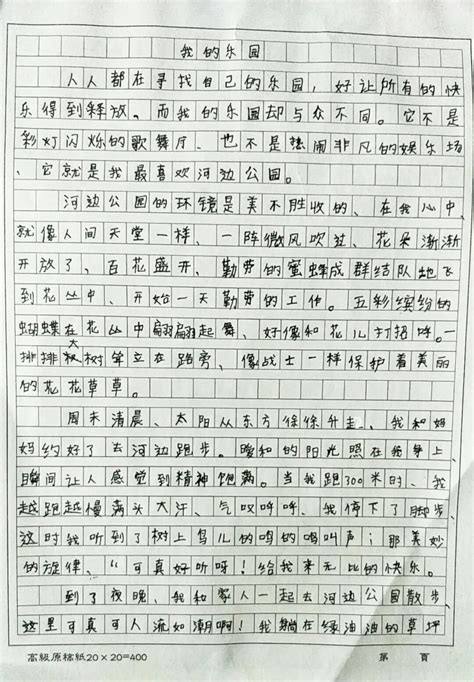 我的乐园
人人都在寻找自己的乐园，好让所有的快
乐得到释放。而我的乐园却与众不同。它不是
彩灯闪烁的歌舞厅、也不是热闹非凡的娱乐场
、它就是我最喜欢河边公园。
河边公园的环镜是美不胜收的、在我心中、
就像人间天堂一样、一阵微风吹过、花朵渐渐
开放了、百花盛开、勤劳的蜜蜂成群结队地飞
到花丛中、开始一天勤劳的工作。五彩缤纷的
蝴蝶在花丛中翩翩起舞、好像和花儿打招呼。一
排排大树耸立在路旁、像战士一样保护着美丽
的花花草草。
周末清晨、太阳从东方徐徐升走、我和妈
妈约好了去河边跑步。暖和的阳光照在我身上、
瞬间让人感觉到精神饱满。当我跑300米时、我
越跑越慢满头大汗、气叹呼呼、我停下了脚步、
这时我听到了树上鸟儿的鸣的鸣叫声；那美妙
的旋律、“可真好听呀！给我来无比的快乐。
到了夜晚、我和家人一起去河边公园散步、
这里可真可人流如潮啊！我躺在绿油油的草坪
高級原稿紙20×20=400 第 頁